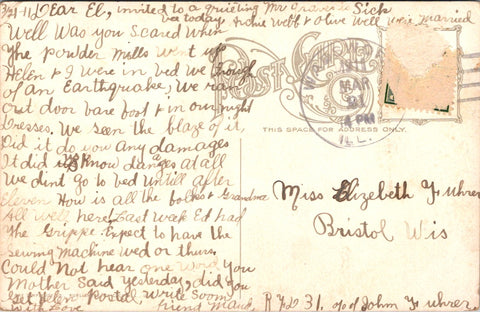 3/21-11 Dear El, invited to a
Archie Webb & Olive Well were married
today
Well Was you scared when
The powder mills went up
Helen & I were in bed we thought
of An Earthquake, We ran
out door bare foot & in our night
Dresses. We seen the blaze of it,
Did it do you Any damages
It did no damages at all
We dint go to bed until after
eleven How is all the folks & Grandma
All well here! Last week Ed had
The Grippe. Expect to have the
sewing machine Wed or thurs.
Could not hear one word you
Mother Said yesterday, did you
get Helens Postal, Write Soon,
With Love Friend Maud,
POST CARD
THIS SPACE FOR ADDRESS ONLY.
MAR
21
4 PM
1911
ILL.
Miss Elizabeth Fuhrer
Bristol Wis
R F D 31. c/o John Fuhrer